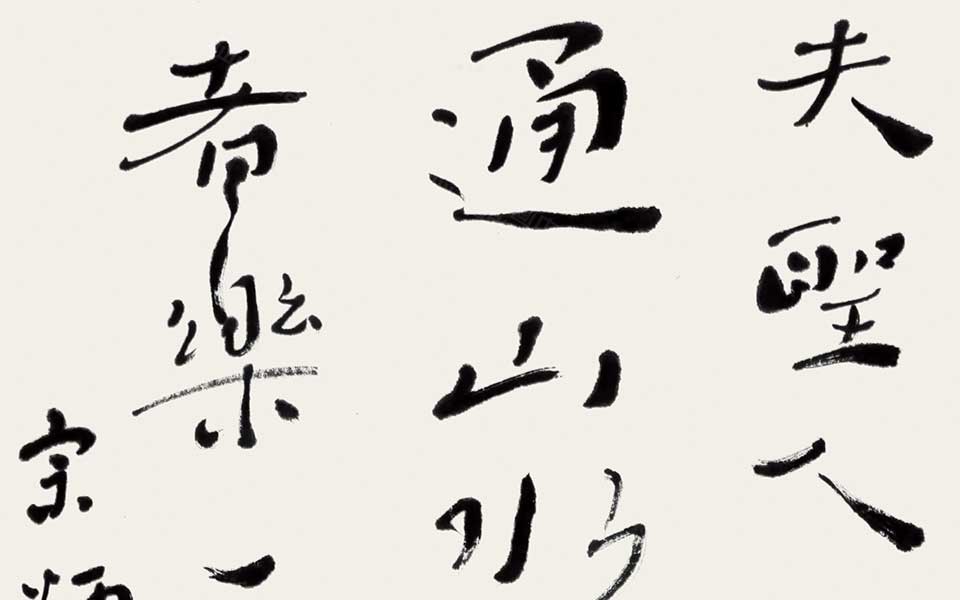 夫聖人
通山水
者樂
宗炳